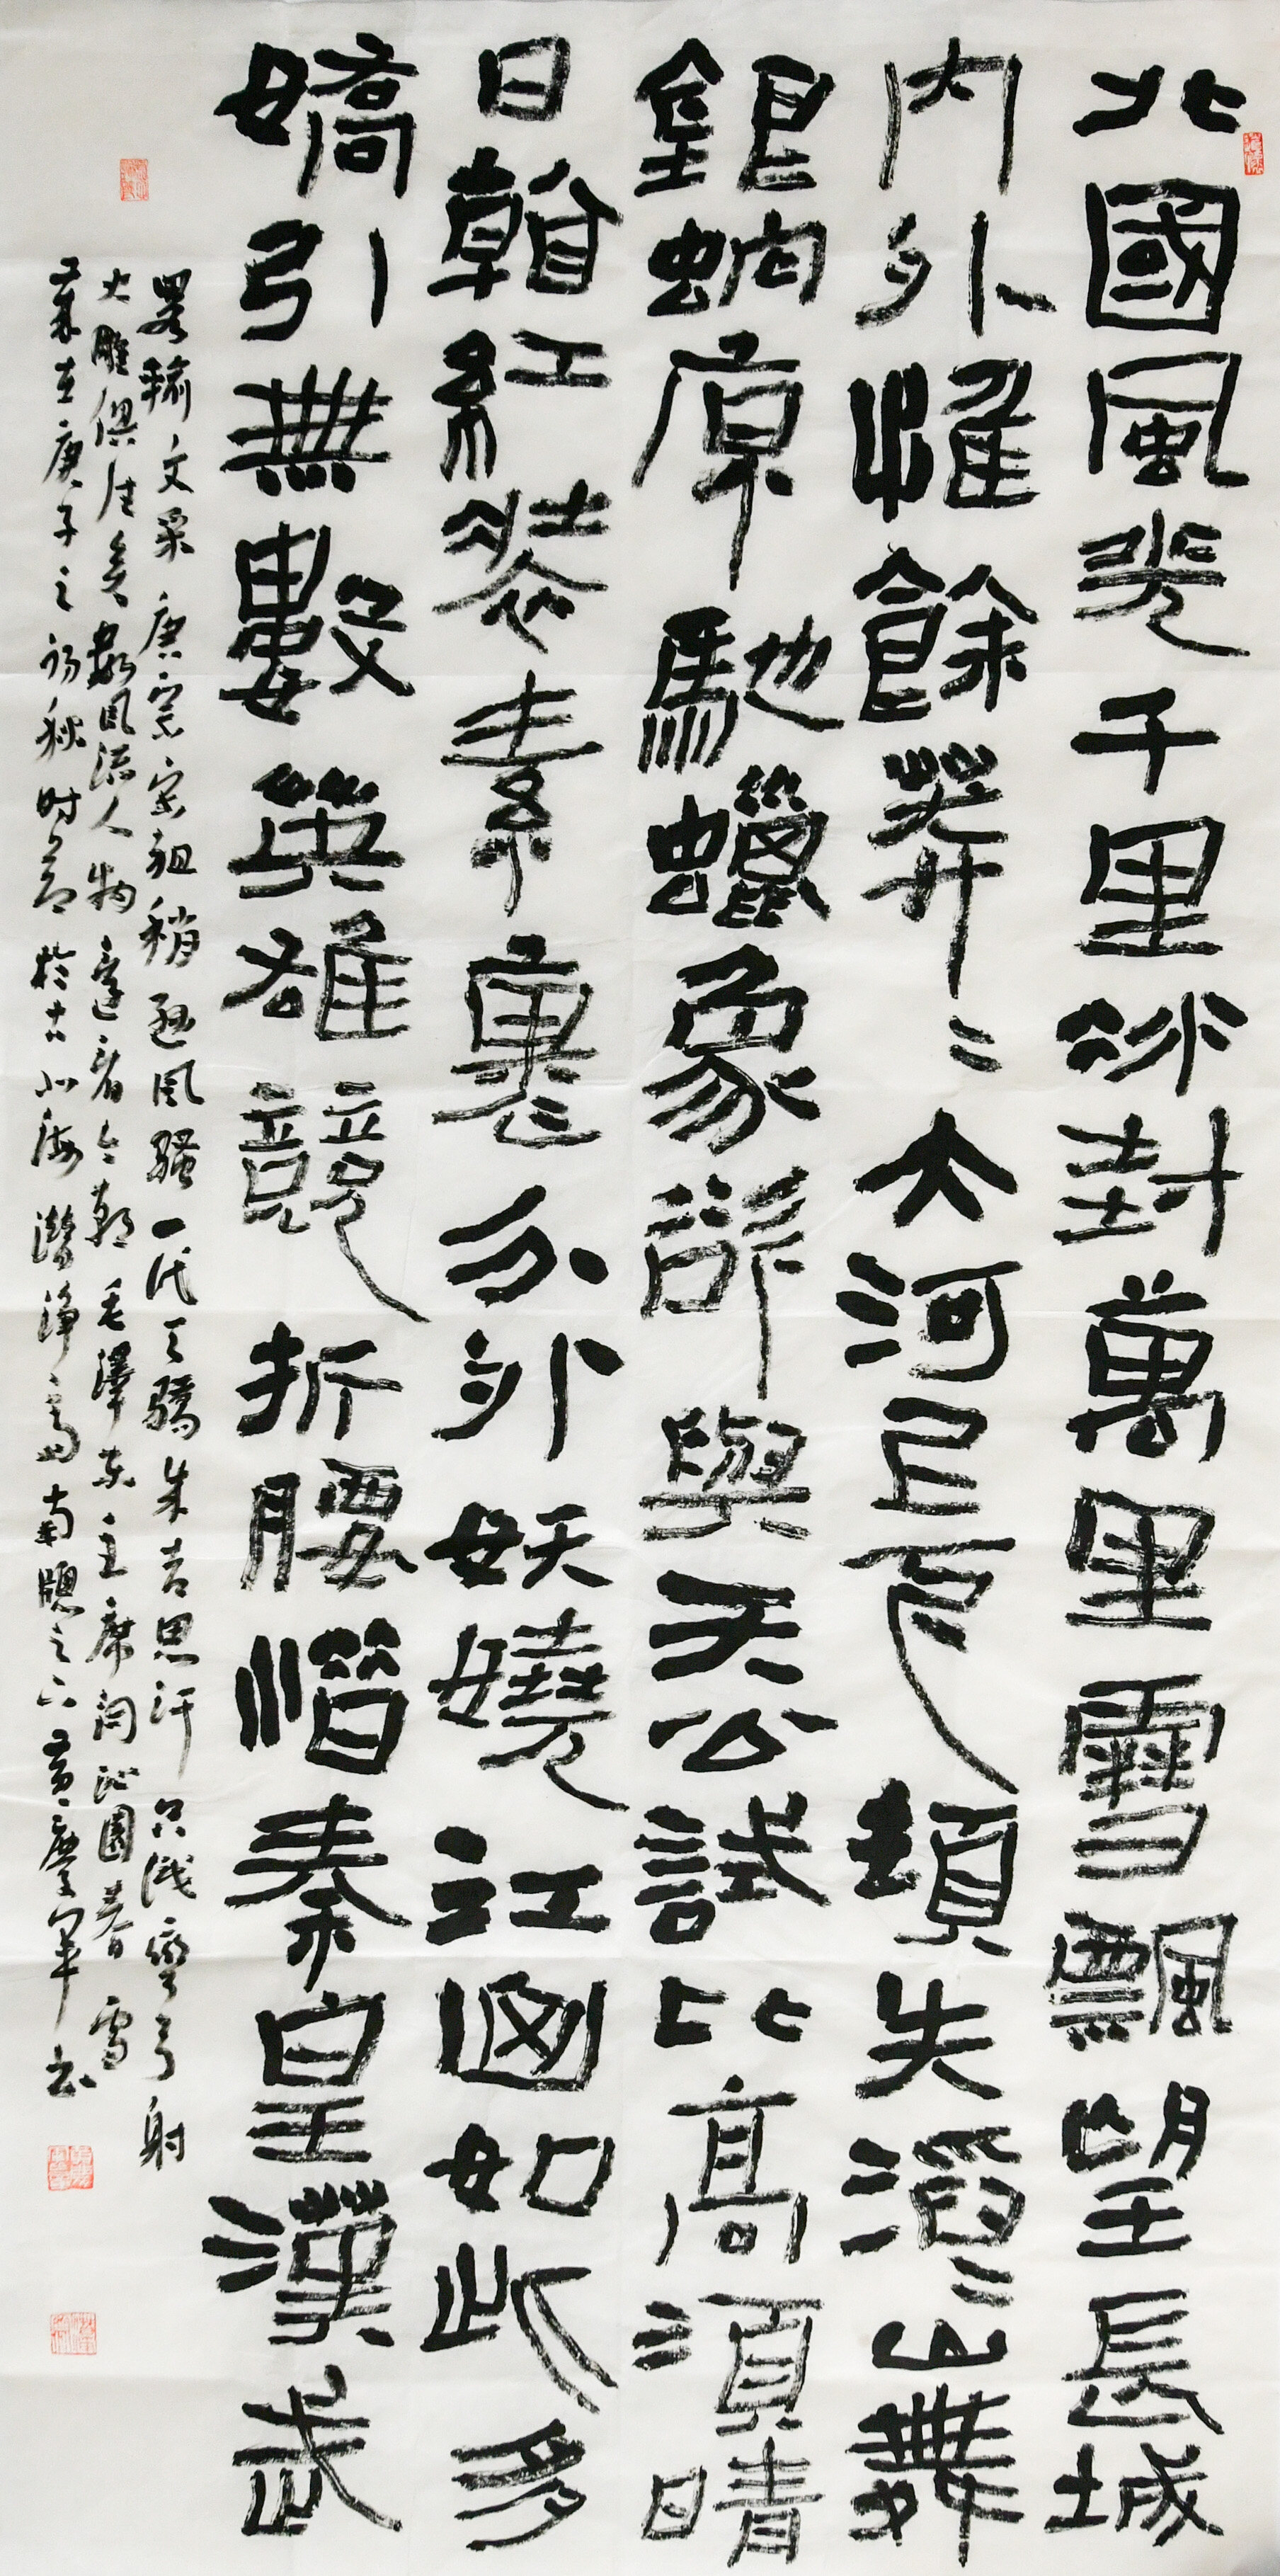 北國風光千里冰封萬里雪飄望長城
内外惟餘莽〻大河上下頓失滔〻山舞
銀蛇原馳蠟象欲與天公試比高須晴
日看紅裝素裹分外妖嬈江山如此多
嬌引無數英雄競折腰惜秦皇漢武
略輸文采唐宗宋祖稍遜風騷一代天驕成吉思汗只識彎弓射
大雕俱往矣數風流人物還看今朝毛澤東主席詞沁園春雪
歲在庚子之初秋時節於古北海南窗之下慶軍書